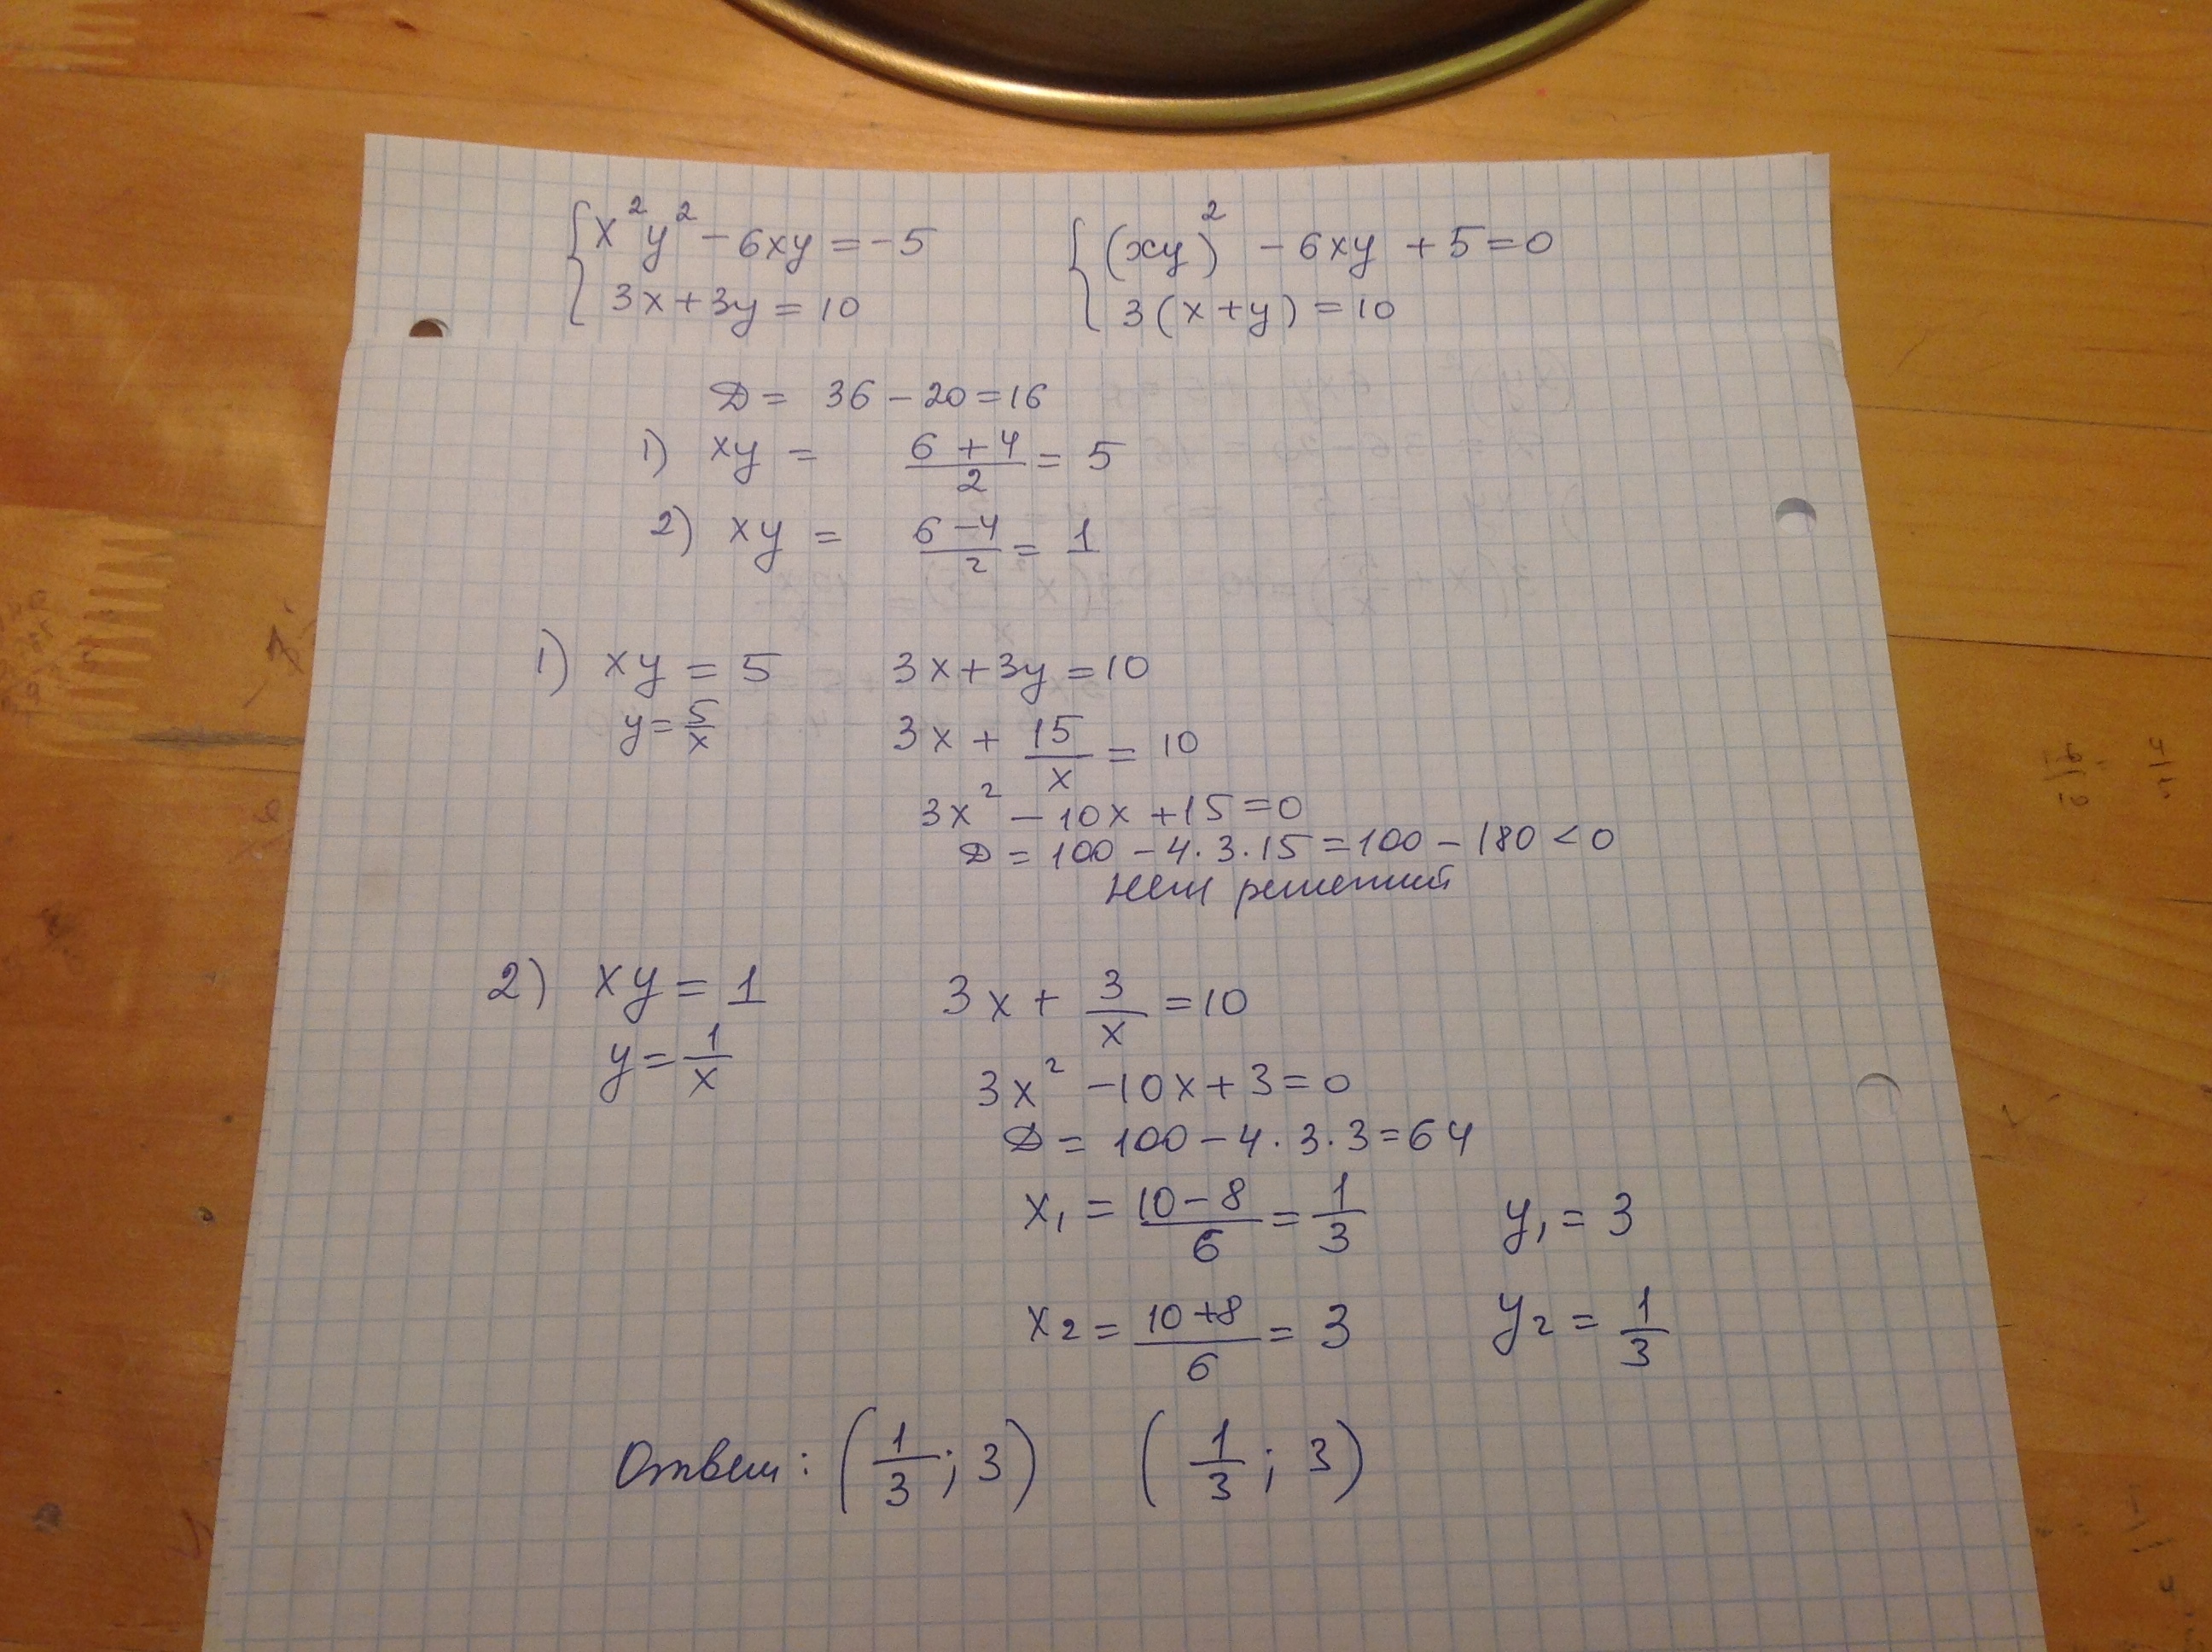 { x²y² - 6xy = -5    { (xy)² - 6xy + 5 = 0
{ 3x + 3y = 10    { 3(x + y) = 10
D = 36 - 20 = 16
1) xy = (6 + 4)/2 = 5
2) xy = (6 - 4)/2 = 1
1) xy = 5    3x + 3y = 10
y = 5/x    3x + 15/x = 10
3x² - 10x + 15 = 0
D = 100 - 4 · 3 · 15 = 100 - 180 < 0
нет решений
2) xy = 1    3x + 3/x = 10
y = 1/x    3x² - 10x + 3 = 0
D = 100 - 4 · 3 · 3 = 64
x₁ = (10 - 8)/6 = 1/3    y₁ = 3
x₂ = (10 + 8)/6 = 3    y₂ = 1/3
Ответ: (1/3; 3)    (1/3; 3)